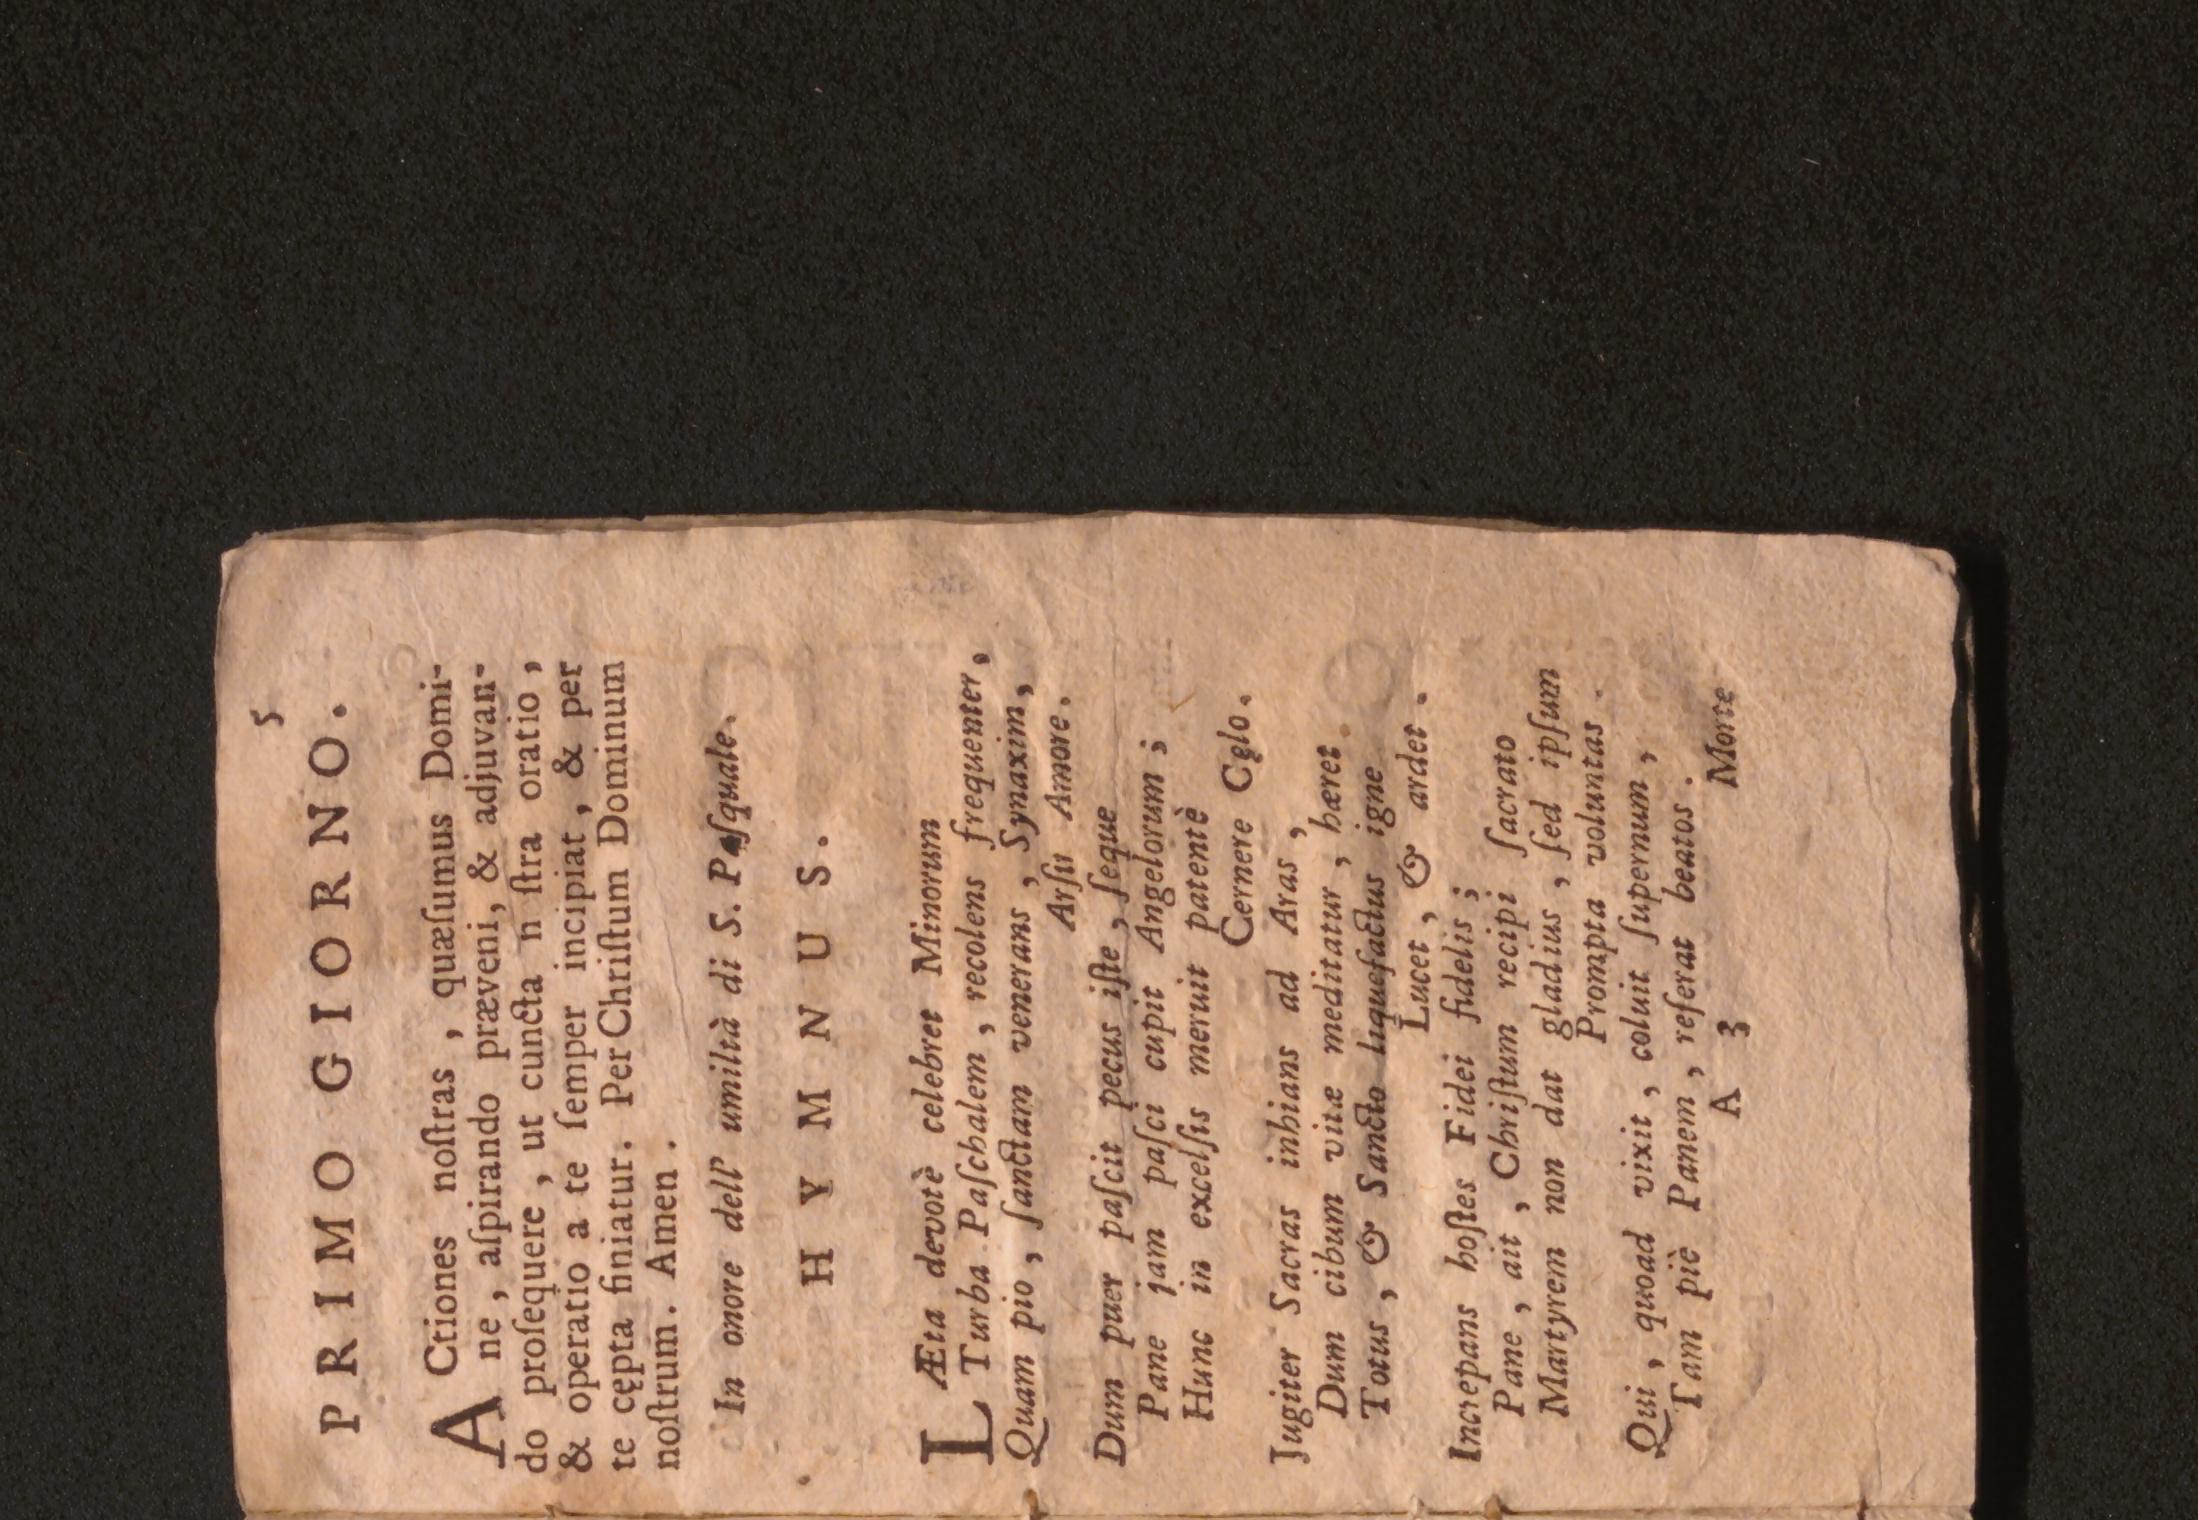 5
PRIMO GIORNO.
ACtiones noſtras , quæſumus Domi-
ne , aſpirando præveni, & adjuvan-
do proſequere , ut cuncta n ſtra oratio ,
& operatio a te ſemper incipiat , & per
te cępta finiatur. Per Chriſtum Dominum
noſtrum. Amen .
In onore dell' umiltà di S. Paſquale.
HYMNUS.
LÆta devotè celebret Minorum
Turba Paſchalem , recolens frequenter,
Quam pio , ſanctam venerans , Synaxim,
Arſit Amore.
Dum puer paſcit pecus iſte , ſeque
Pane jam paſci cupit Angelorum ;
Hunc in excelſis meruit patentè
Cernere Cęlo.
Jugiter Sacras inhians ad Aras ,
Dum cibum vitæ meditatur , hæret
Totus , & Sancto liquefactus igne
Lucet , & ardet .
Increpans hoſtes Fidei fidelis ;
Pane , ait , Chriſtum recipi ſacrato
Martyrem non dat gladius , ſed ipſum
Prompta voluntas .
Qui , quoad vixit , coluit ſupernum ,
Tam piè Panem , reſerat beatos .
A 3 Morte